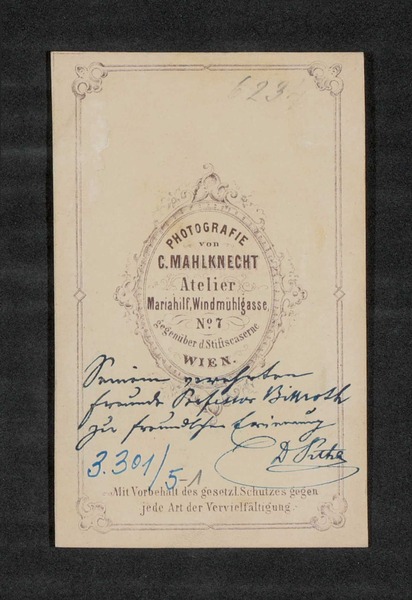 6234
PHOTOGRAFIE
von
C. MAHLKNECHT
Atelier
Mariahilf, Windmühlgasse,
No. 7
gegenüber d Stiftscaserne
WIEN.
Seinem verehrten
Freunde Professor Billroth
zur freundlichen Erinnerung
D Pitha
3.301/5-1
Mit Vorbehalt des gesetzl. Schutzes gegen
jede Art der Vervielfältigung.